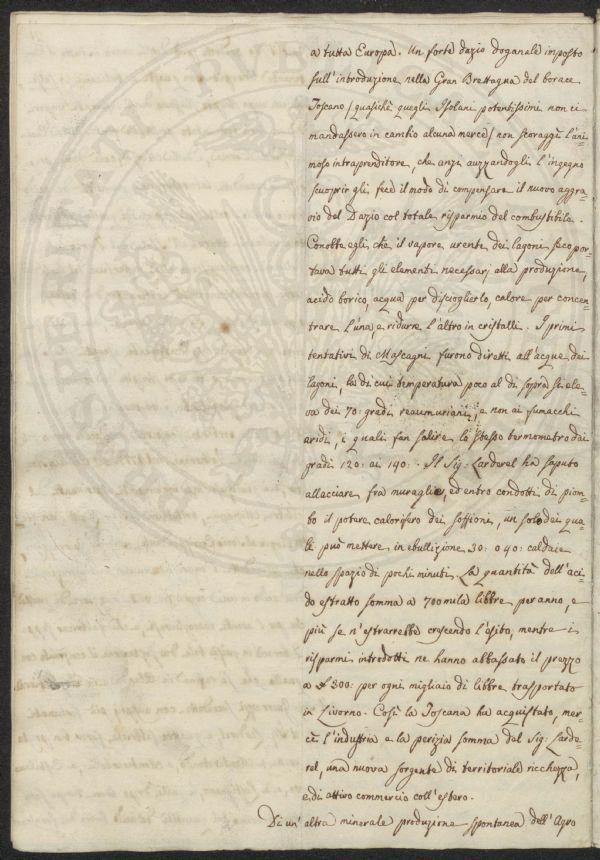 a tutta Europa. Un forte dazio doganale imposto
sull'introduzione nella Gran Brettagna del borace
Toscano (quasichè quegli Isolani potentissimi non ci
mandassero in cambio alcuna merce) non scoraggì l'ani-
moso intraprenditore, che anzi auzzandogli l'ingegno
scuoprir gli fece il modo di compensare il nuovo aggra-
vio del Dazio col totale risparmio del combustibile.
Conobbe egli che il vapore urente dei lagoni seco por-
tava tutti gli elementi necessarj alla produzione,
acido borico, acqua per discioglierlo, calore per concen-
trare l'una, e ridurre l'altro in cristalli. I primi
tentativi di Mascagni furono diretti all'acque dei
lagoni, la di cui temperatura poco al di sopra si ele-
va dei 70: gradi reaumuriani, e non ai fumacchi
aridi, i quali fan salire lo stesso termometro dai
gradi 120: ai 140:. Il Sig: Larderel ha saputo
allacciare fra muraglie, ed entro condotti di piom-
bo il potere calorifero dei soffioni, un solo dei qua-
li può mettere in ebullizione 30: o 40: caldaie
nello spazio di pochi minuti. La quantità dell'aci-
do estratto somma a 700mila libbre per anno, e
più se n'estrarrebbe crescendo l'esito, mentre i
risparmi introdotti ne hanno abbassato il prezzo
a £ 300: per ogni migliaio di libbre trasportato
in Livorno. Così la Toscana ha acquistato, mer-
cè l'industria e la perizia somma del Sig: Larde-
rel, una nuova sorgente di territoriale ricchezza,
e di attivo commercio coll'estero.
Di un'altra minerale produzione spontanea dell'Agro